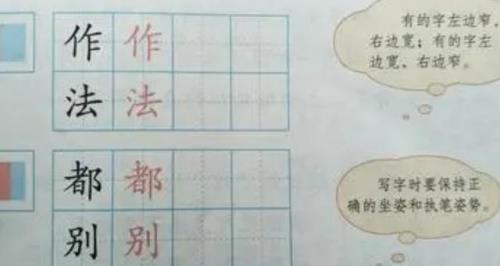 作 作
法 法
有的字左边窄、
右边宽；有的字左
边宽、右边窄。
都 都
别 别
写字时要保持正
确的坐姿和执笔姿势。